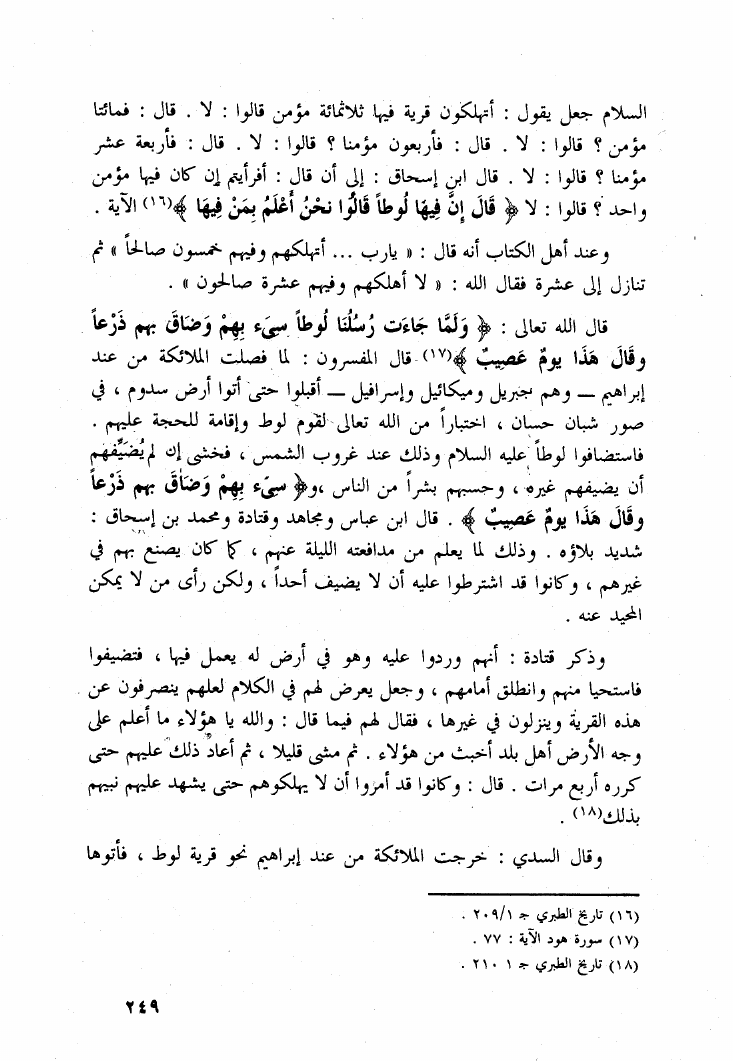 السلام جعل يقول : أتهلكون قرية فيها ثلاثمائة مؤمن قالوا : لا . قال : فمائتا
مؤمن ؟ قالوا : لا . قال : فأربعون مؤمنا ؟ قالوا : لا . قال : فأربعة عشر
مؤمنا ؟ قالوا : لا . قال ابن إسحاق : إلى أن قال : أفرأيتم إن كان فيها مؤمن
واحد ؟ قالوا : لا ﴿ قَالَ إنَّ فِيهَا لُوطاً قَالُوا نحْنُ أَعْلَمُ بِمَنْ فِيهَا ﴾(١٦) الآية .
وعند أهل الكتاب أنه قال : « يارب ... أتهلكهم وفيهم خمسون صالحاً » ثم
تنازل إلى عشرة فقال الله : « لا أهلكهم وفيهم عشرة صالحون » .
قال الله تعالى : ﴿ وَلَمَّا جَاءَت رُسُلُنَا لُوطاً سِيَء بِهِمْ وَضَاقَ بهم ذَرْعاً
وقَالَ هَذَا يومٌ عَصِيبٌ ﴾(١٧) قال المفسرون : لما فصلت الملائكة من عند
إبراهيم – وهم جبريل وميكائيل وإسرافيل – أقبلوا حتى أتوا أرض سدوم ، في
صور شبان حسان ، اختباراً من الله تعالى لقوم لوط وإقامة للحجة عليهم .
فاستضافوا لوطاً عليه السلام وذلك عند غروب الشمس ، فخشى إن لم يُضَيِّفهم
أن يضيفهم غيره ، وحسبهم بشراً من الناس ،و﴿ سِيَء بِهِمْ وَضَاقَ بهم ذَرْعاً
وقَالَ هَذَا يومٌ عَصِيبٌ ﴾ . قال ابن عباس ومجاهد وقتادة ومحمد بن إسحاق :
شديد بلاؤه . وذلك لما يعلم من مدافعته الليلة عنهم ، كما كان يصنع بهم في
غيرهم ، وكانوا قد اشترطوا عليه أن لا يضيف أحداً ، ولكن رأى من لا يمكن
المحيد عنه .
وذكر قتادة : أنهم وردوا عليه وهو في أرض له يعمل فيها ، فتضيفوا
فاستحيا منهم وانطلق أمامهم ، وجعل يعرض لهم في الكلام لعلهم ينصرفون عن
هذه القرية وينزلون في غيرها ، فقال لهم فيما قال : والله يا هؤلاء ما أعلم على
وجه الأرض أهل بلد أخبث من هؤلاء . ثم مشى قليلا ، ثم أعاد ذلك عليهم حتى
كرره أربع مرات . قال : وكانوا قد أمروا أن لا يهلكوهم حتى يشهد عليهم نبيهم
بذلك(١٨) .
وقال السدي : خرجت الملائكة من عند إبراهيم نحو قرية لوط ، فأتوها
(١٦) تاريخ الطبري جـ ٢٠٩/١ .
(١٧) سورة هود الآية : ٧٧ .
(١٨) تاريخ الطبري جـ ١ ٢١٠ .
٢٤٩